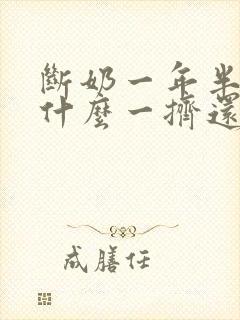 斷奶一年半
什麼一擠還
成膳任